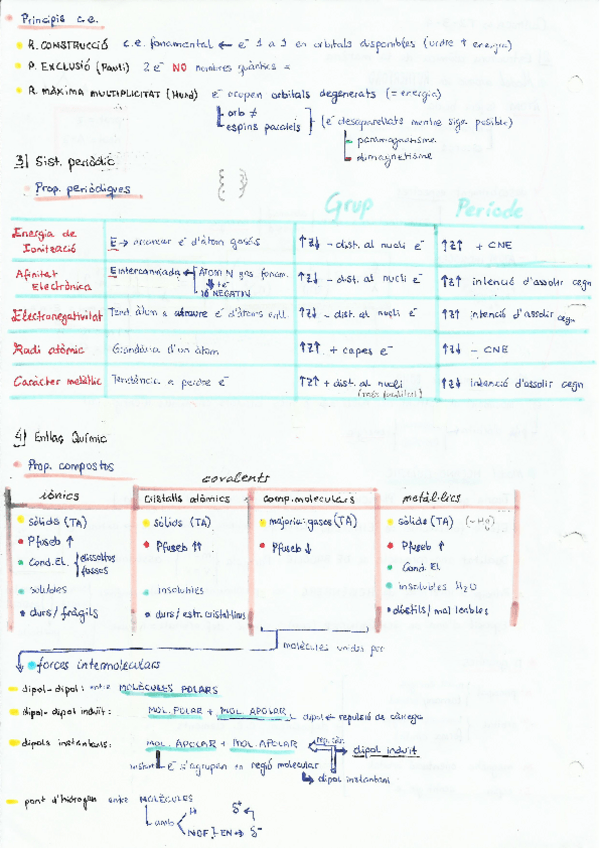 Principis c.e.
R. CONSTRUCCIÓ c.e. fonamental ← e⁻ 1 a 1 en orbitals disponibles (ordre ↑ energia)
P. EXCLUSIÓ (Pauli) 2 e⁻ NO nombres quàntics =
R. MÀXIMA MULTIPLICITAT (Hund) e⁻ ocupen orbitals degenerats (= energia)
orb ≠
espins paral·lels } (e⁻ desaparellats mentre sigui possible)
paramagnetisme
diamagnetisme
3] Sist. periòdic
Prop. periòdiques
Grup Període
Energia de Ionització E → arrancar e⁻ d'àtom gasós ↑Z↓ - dist. al nucli e⁻ ↑Z↑ + CNE
Afinitat Electrònica E intercanviada ← ÀTOM N gas fonam. + e⁻ → IÓ NEGATIU ↑Z↓ - dist. al nucli e⁻ ↑Z↑ intenció d'assolir cegn
Electronegativitat Tend. àtom a atraure e⁻ d'àtoms enll. ↑Z↓ - dist. al nucli e⁻ ↑Z↑ intenció d'assolir cegn
Radi atòmic Grandària d'un àtom ↑Z↑ + capes e⁻ ↑Z↓ - CNE
Caràcter metàl·lic Tendència a perdre e⁻ ↑Z↑ + dist. al nucli ↑Z↓ intenció d'assolir cegn
4] Enllaç Químic
Prop. compostos
covalents
iònics cristalls atòmics comp. moleculars metàl·lics
sòlids (TA) sòlids (TA) majoria: gasos (TA) sòlids (TA) (¬Hg)
Pfuseb ↑ Pfuseb ↑↑ Pfuseb ↓ Pfuseb ↑
Cond. El. { dissoltos fosos Cond. El
solubles insolubles insolubles H₂O
durs / fràgils durs / estr. cristal·lines dúctils / mal·leables
molècules unides per
forces intermoleculars
dipol-dipol: entre MOLÈCULES POLARS
dipol-dipol induït: MOL. POLAR + MOL. APOLAR dipol ← repulsió de càrrega
dipols instantanis: MOL. APOLAR + MOL. APOLAR rep. càr. → dipol induït
instant e⁻ s'agrupen en regió molecular
dipol instantani
pont d'hidrogen entre MOLÈCULES
amb H δ⁺
NOF } EN → δ⁻